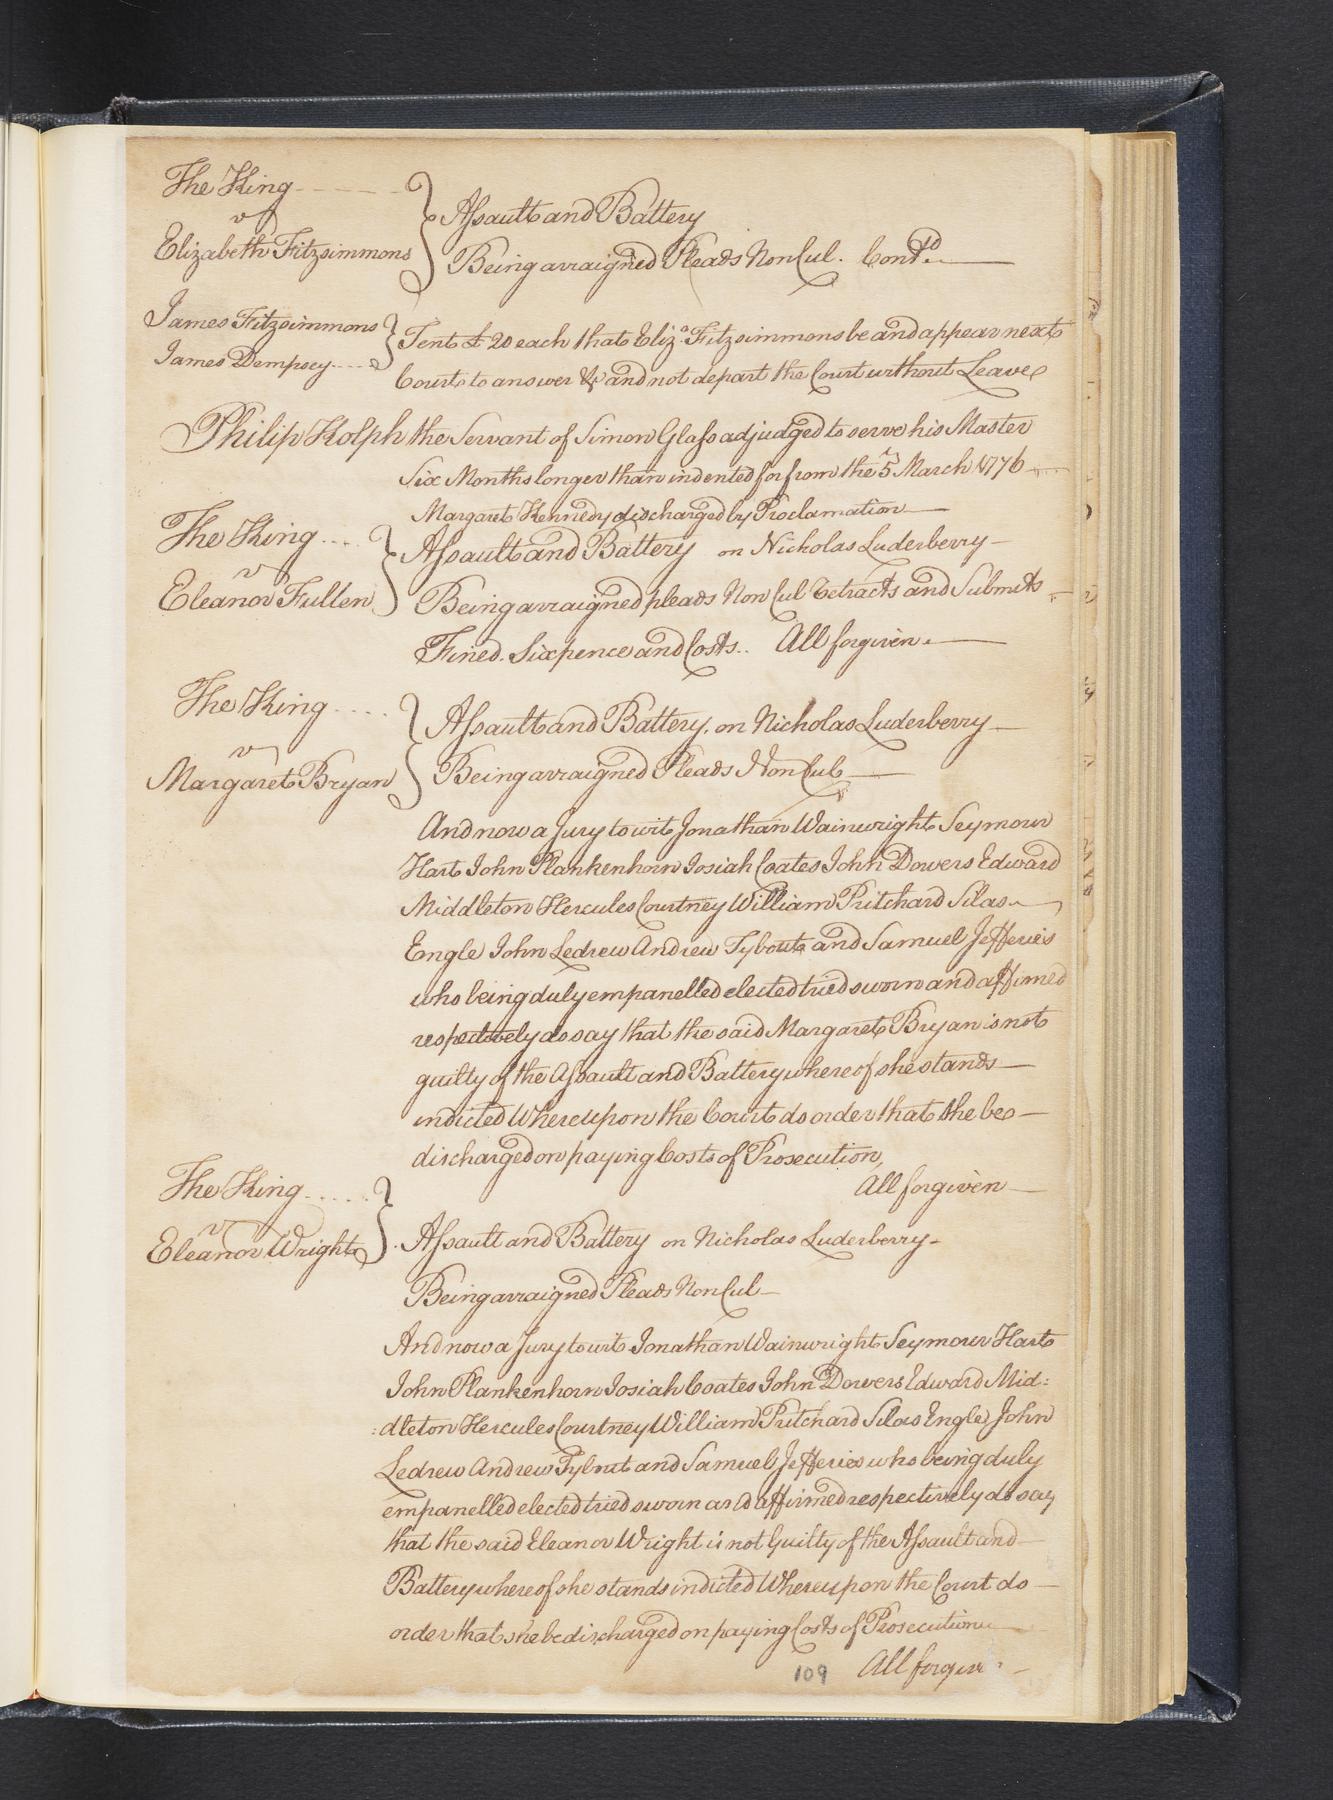 The King
v
Elizabeth Fitzsimmons
Assault and Battery
Being arraigned Pleads Non Cul. Contd.
James Fitzsimmons
James Dempsey
Tent £ 20 each that Eliz.a Fitzsimmons be and appear next
Court to answer &c and not depart the Court without Leave
Philip Kolph the Servant of Simon Glass adjudged to serve his Master
Six Months longer than indented for from the 5 March 1776
Margaret Kennedy discharged by Proclamation
The King
v
Eleanor Fullen
Assault and Battery on Nicholas Luderberry
Being arraigned pleads Non Cul retracts and Submits
Fined Sixpence and Costs.. All forgiven.
The King
v
Margaret Bryan
Assault and Battery. on Nicholas Luderberry
Being arraigned Pleads Non Cul
And now a Jury to wit Jonathan Wainwright Seymour
Hart John Plankenhorn Josiah Coates John Dowers Edward
Middleton Hercules Courtney William Pritchard Silas
Engle John Ledrew Andrew Tybout and Samuel Jefferies
who being duly empanelled elected tried sworn and affirmed
respectively do say that the said Margaret Bryan is not
guilty of the Assault and Battery whereof she stands
indicted Whereupon the Court do order that she be
discharged on paying Costs of Prosecution,
All forgiven
The King
v
Eleanor Wright
Assault and Battery on Nicholas Luderberry
Being arraigned Pleads Non Cul
And now a Jury to wit Jonathan Wainwright Seymour Hart
John Plankenhorn Josiah Coates John Dowers Edward Mid:
:dleton Hercules Courtney William Pritchard Silas Engle John
Ledrew Andrew Tybout and Samuel Jefferies who being duly
empanelled elected tried sworn and affirmed respectively do say
that the said Eleanor Wright is not Guilty of the Assault and
Battery whereof she stands indicted Whereupon the Court do
order that she be discharged on paying Costs of Prosecution
109 All forgiven